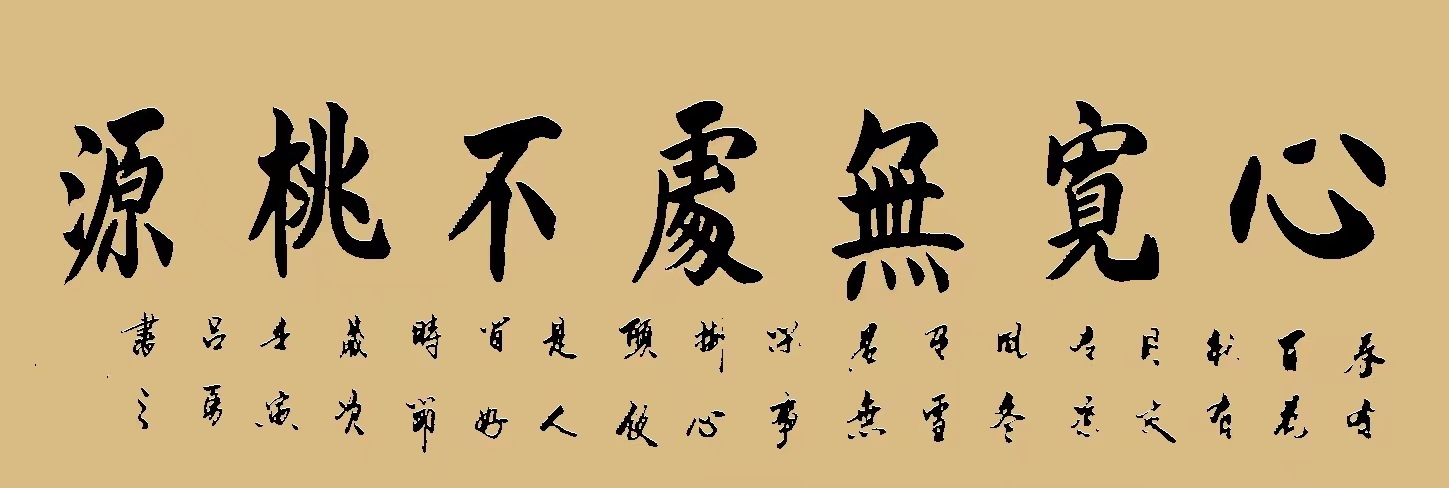 心寬無處不桃源
春有
百花
秋有
月夏
有凉
風冬
有雪
若無
閑事
掛心
頭便
是人
間好
時節
歲次
壬寅
吕勇
書之